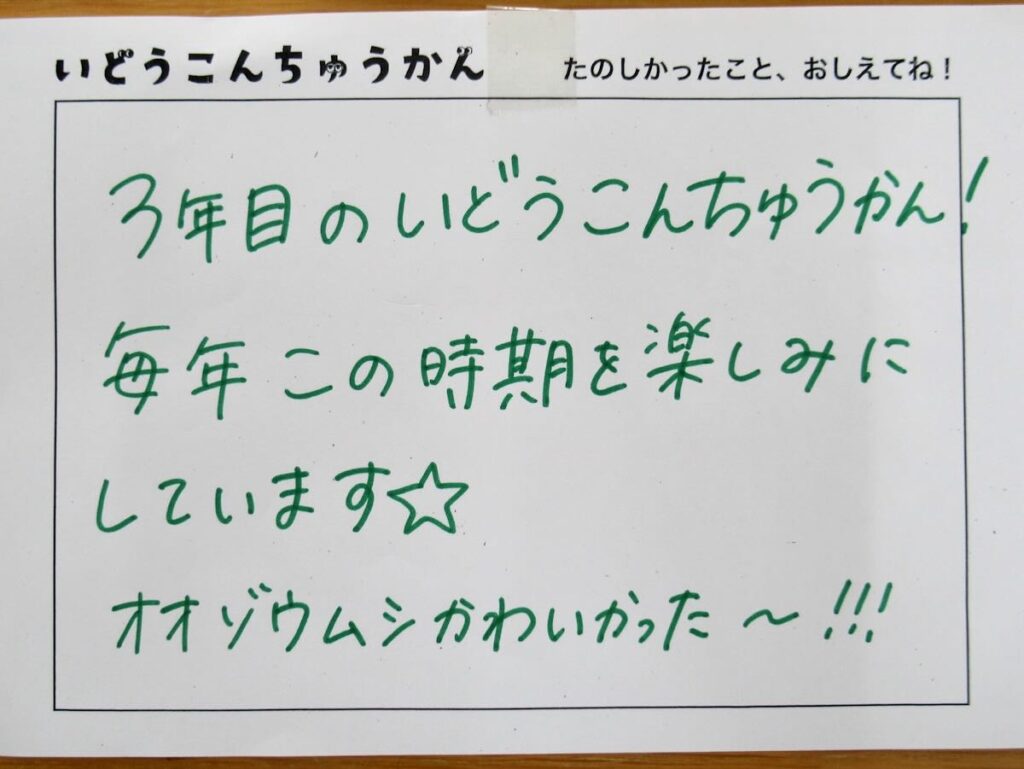 いどうこんちゅうかん たのしかったこと、おしえてね！
3年目のいどうこんちゅうかん！
毎年この時期を楽しみに
しています☆
オオゾウムシかわいかった〜!!!